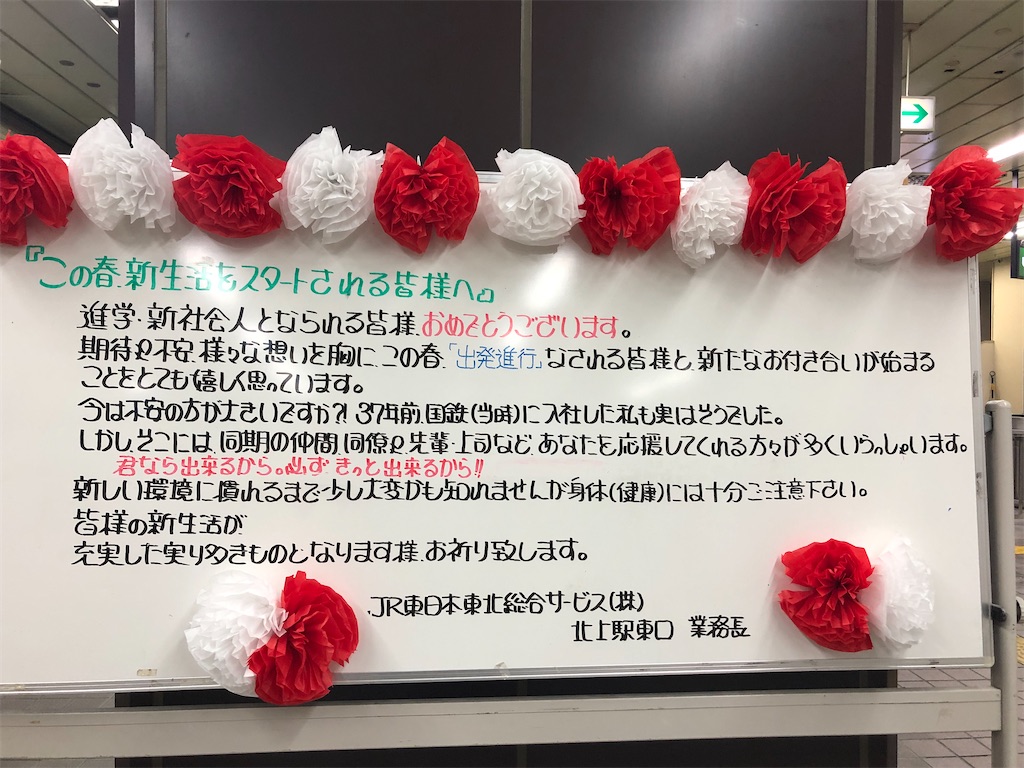 『この春、新生活をスタートされる皆様へ』
進学・新社会人となられる皆様、おめでとうございます。
期待や不安、様々な想いを胸に、この春、「出発進行」なされる皆様と、新たなお付き合いが始まる
ことをとても嬉しく思っています。
今は不安の方が大きいですか?! 37年前、国鉄(当時)に入社した私も実はそうでした。
しかし、そこには、同期の仲間、同僚や先輩・上司など、あなたを応援してくれる方々が多くいらっしゃいます。
君なら出来るから。必ず、きっと出来るから!!
新しい環境に慣れるまで少し大変かも知れませんが身体(健康)には十分ご注意下さい。
皆様の新生活が、
充実した実り多きものとなります様、お祈り致します。
JR東日本東北総合サービス(株)
北上駅東口 業務長